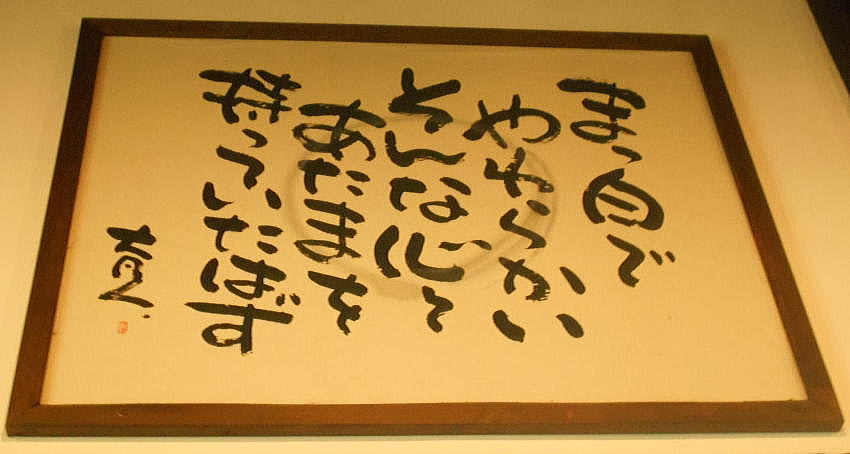 まっ白で
やわらかい
そんな心と
あたまを
持っていたはず